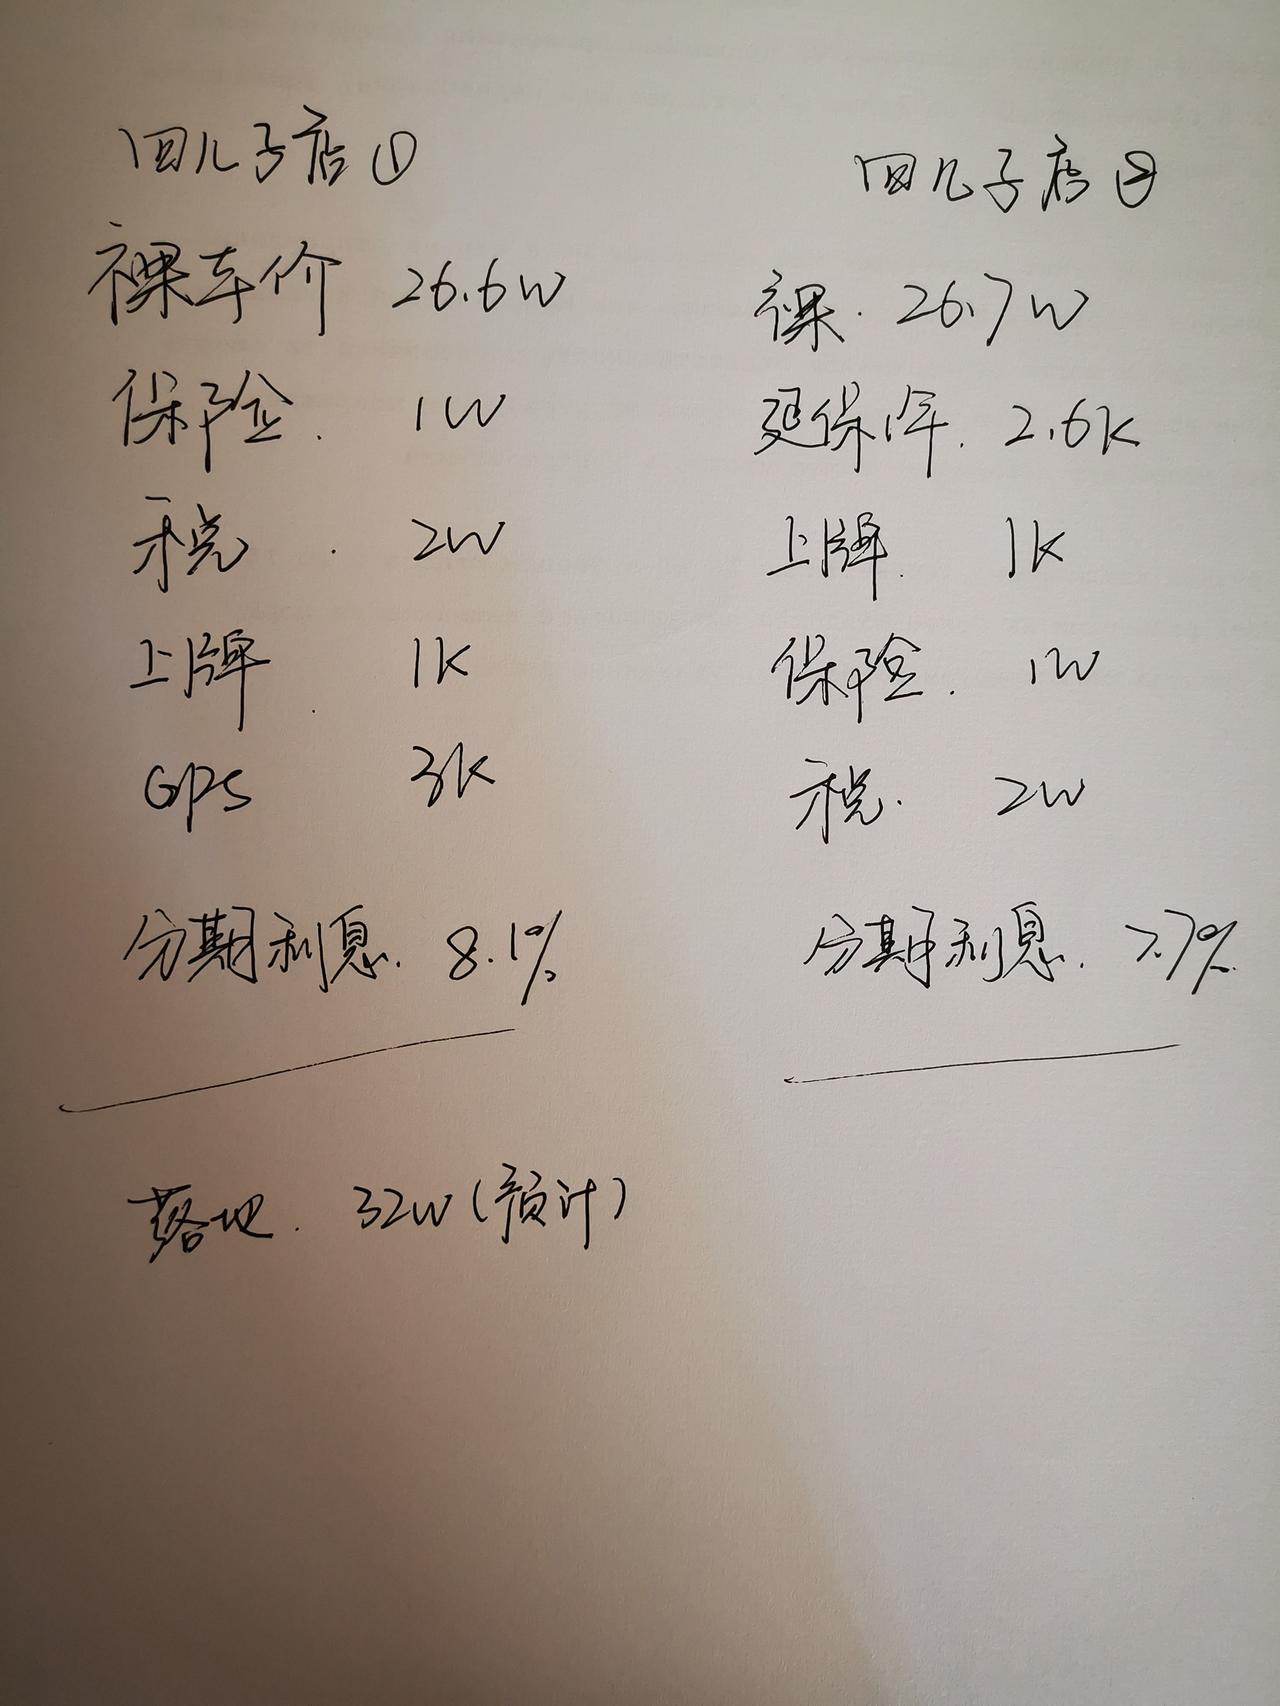 四儿子店①
裸车价 26.6W
保险. 1W
税. 2W
上牌 1K
GPS 3K
分期利息. 8.1%
落地. 32W(预计)
四儿子店②
裸. 26.7W
延保1年. 2.6K
上牌. 1K
保险. 1W
税. 2W
分期利息. 7.7%